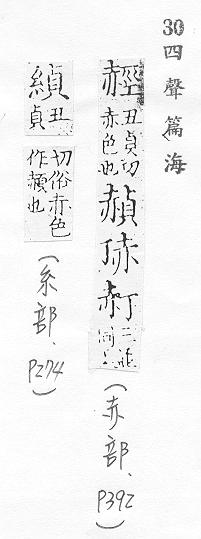 30 四聲篇海
䞓 丑貞切
赤色也
赬
二並
同上
(赤部、P392)
緽 丑
貞
切俗赤色
作頳也
(糸部、P274)